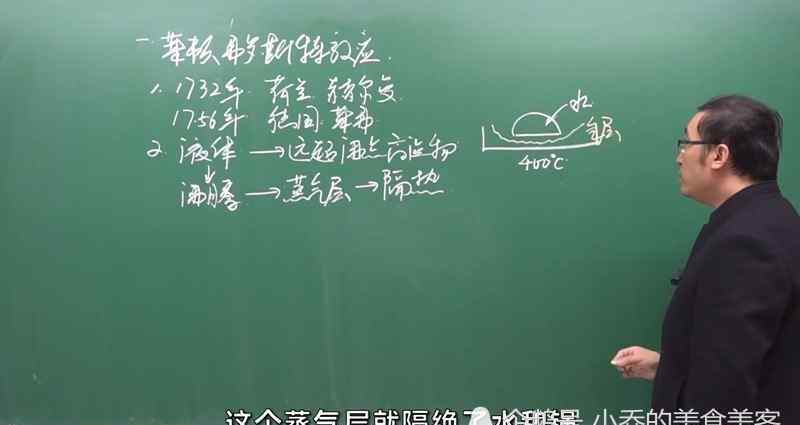 一 莱顿弗罗斯特效应
1. 1732年 荷兰
1756年 德国 莱弗
2. 液体 → 远超沸点高温物
↓
沸腾 → 蒸气层 → 隔热
水
400℃
这个蒸气层就隔绝了水和锅
小乔的美食美客